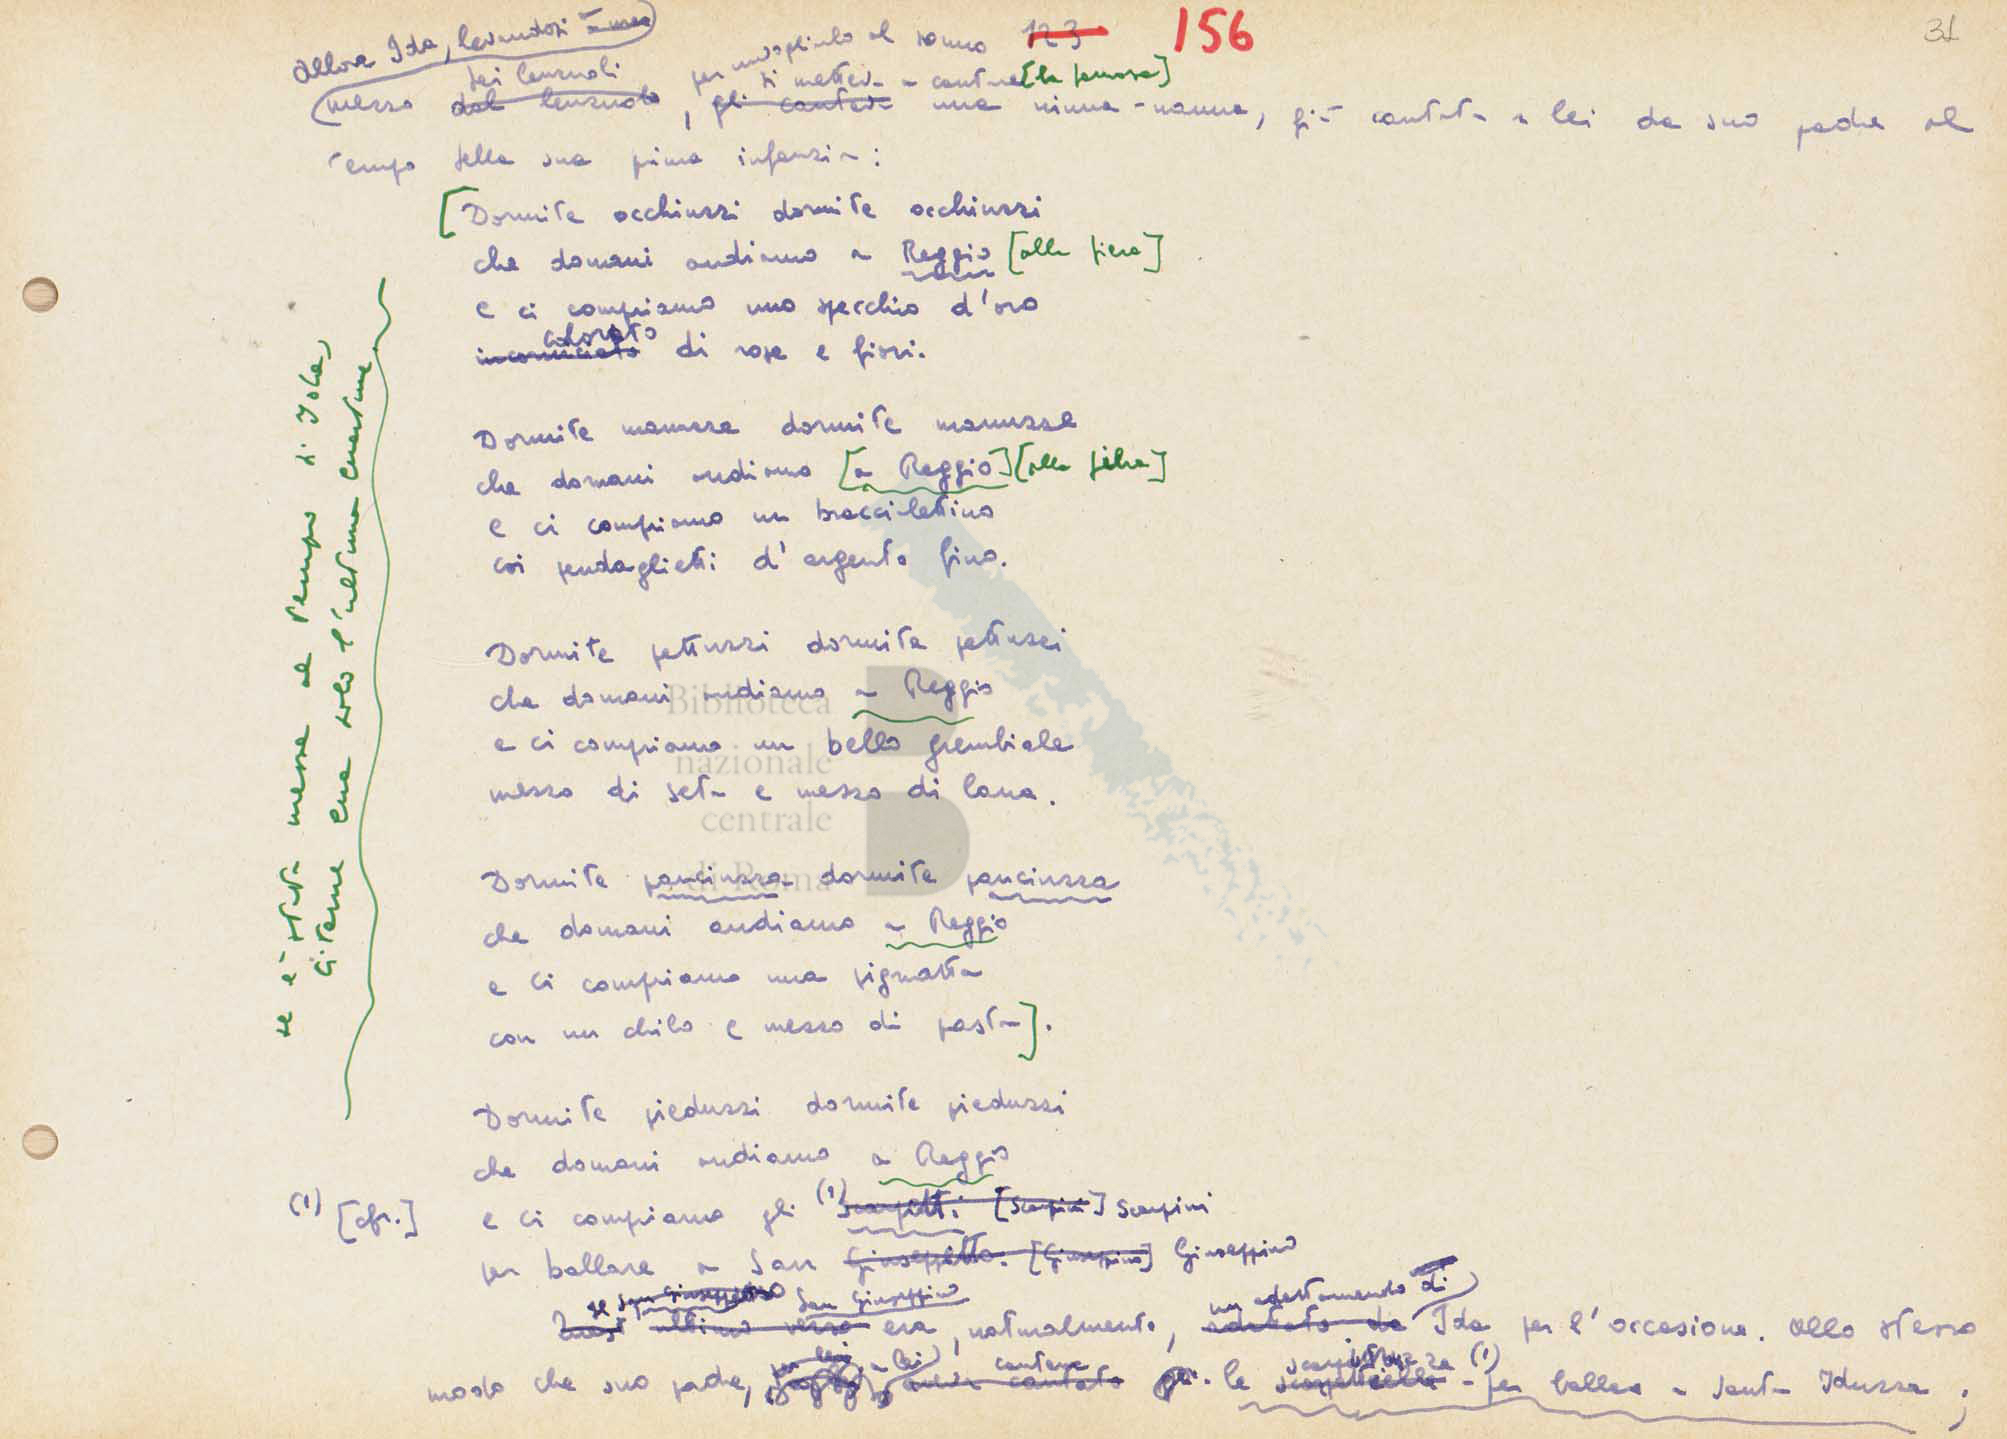 123 156 31
allora Ida, levandosi a mezzo
dei lenzuoli per invogliarlo al sonno
si metteva a cantare [la famosa]
mezzo dal lenzuolo, gli cantava una ninna-nanna, già cantata a lei da suo padre al
tempo della sua prima infanzia:
[Dormite occhiuzzi dormite occhiuzzi
che domani andiamo a Reggio [alla fiera]
e ci compriamo uno specchio d'oro
colorato
incorniciato di rose e fiori.
Dormite manuzze dormite manuzze
che domani andiamo [a Reggio] [alla fiera]
e ci compriamo un braccialettino
coi pendaglietti d'argento fino.
Dormite pettuzzi dormite pettuzzi
che domani andiamo a Reggio
e ci compriamo un bello grembiale
mezzo di seta e mezzo di lana.
Dormite panciuzza dormite panciuzza
che domani andiamo a Reggio
e ci compriamo una pignatta
con un chilo e mezzo di pasta].
Dormite pieduzzi dormite pieduzzi
che domani andiamo a Reggio
(1) [cfr.] e ci compriamo gli (1) scarpetti [scarpini] scarpini
per ballare a San Giuseppetto. [Giuseppino] Giuseppino
San Giuseppino un adattamento di
ultimo verso era, naturalmente, adattato da Ida per l'occasione. Allo stesso
per lei a lei cantava (1)
modo che suo padre, aveva cantato le - per ballare a Santa Iduzza;
se è stata messa al tempo di Ida,
citarne una solo l'ultima
Biblioteca
nazionale
centrale
di Roma